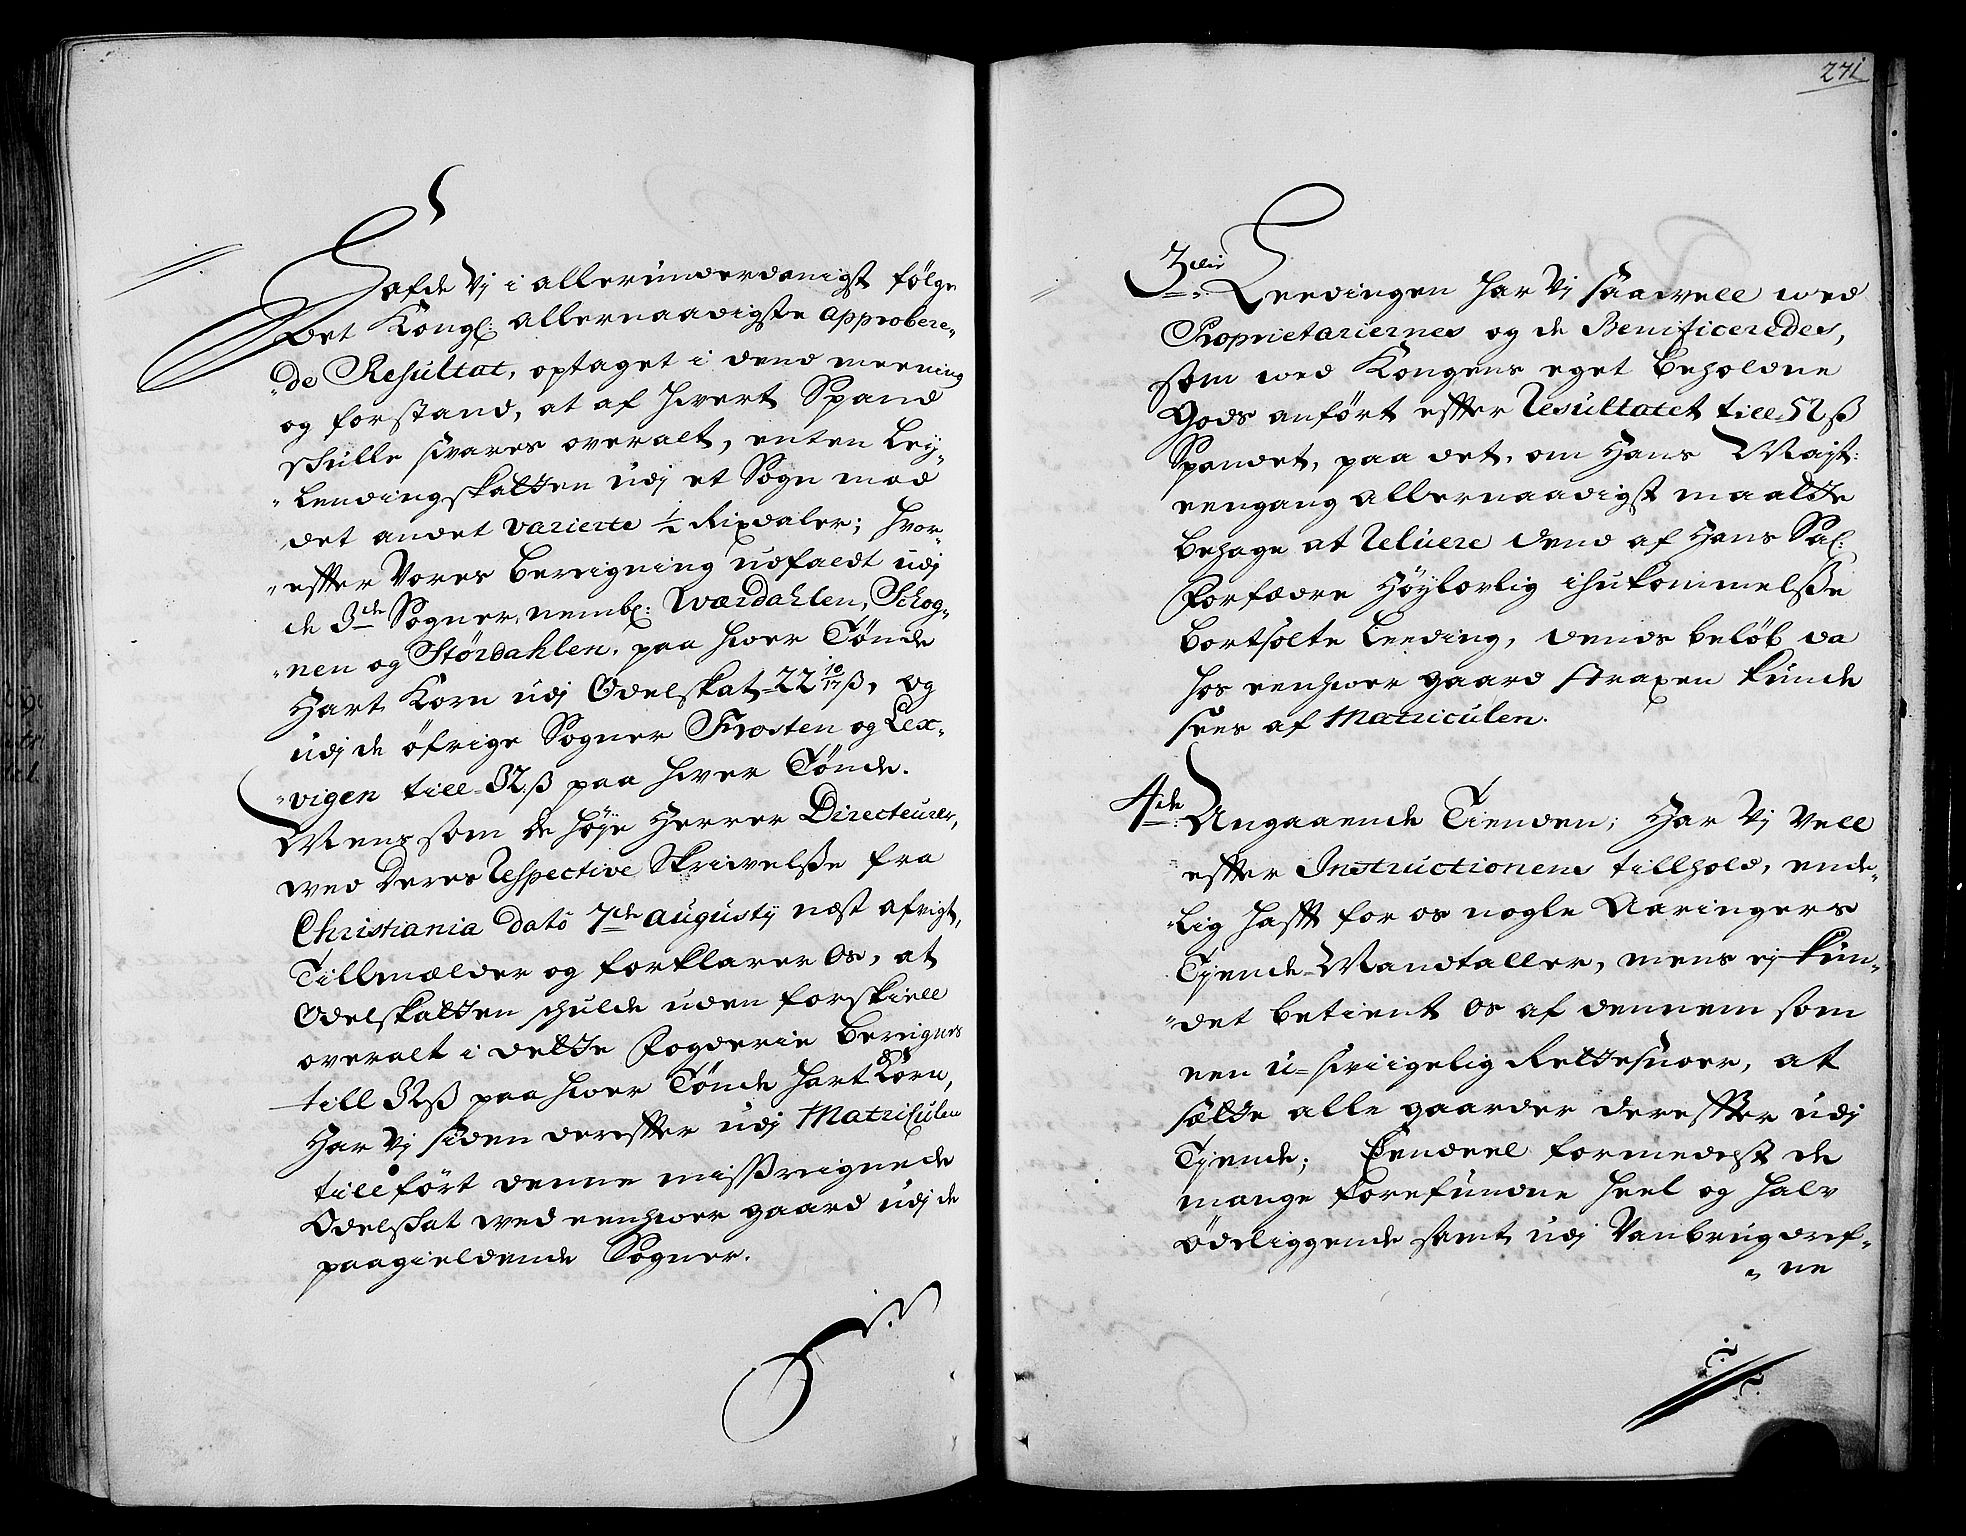 Hafde Vj i allerunderdanigst følge
det Kongl: Allernaadigste approbere„
„de Resultat, optaget i dend meening
og forstand, at af hvert Spand
skulle svares overalt, enten Ley„
„lendingskatten udj et Sogn mod
det andet varierte 1/2 Rixdaler; hvor„
„effter Vores beregning udfaldt udj
de 3de Sogner, nembl: Wærdahlen, Schog„
„nen og Størdahlen, paa hver Tønde
Hart Korn udj Odelskat 22 10/17 ß, og
udj de øfrige Sogner Frosten og Lex„
„vigen till 32 ß paa hver Tønde.
Mens som de høje Herrer Directeurer,
wed deres Respective Skrivelße fra
Christiania dato 7de augusty næst afvigt,
Tillmælder og forklarer Os, at
Odelskatten schulde uden forskiell
overalt i dette Fogderie beregnes
till 32 ß paa hver Tønde hart Korn,
Har Vj siden dereffter udj Matriculen
tillført denne mißreignede
Odelskat wed eenhver gaard udj de
paagieldende Sogner.
271
3die
Leedingen har Vj saawell wed
Proprietariernes og de Benificeredes,
som wed Kongens eget beholdne
Gods anført effter Resultatet till 52 ß
Spandet, paa det, om Hans Mayt:
eengang allernaadigst maatte
behage at Reluere dend af Hans Sal:
Forfædre Høylovlig ihukommelße
bortsolte Leeding, dends beløb da
hos eenhver gaard straxen kunde
sees af Matriculen.
4de
Angaaende Tienden; Har Vj vell
effter Instructionens tillhold, ende„
„lig hafft for os nogle Aaringers
Tjende Mandtaller, mens ej kun„
„det betient Os af dennem som
een u=svigelig Rettesnoer, at
sætte alle gaarder dereffter udj
Tjende; Eendeel formedelst de
mange forefundne heel og halv
ødeliggende samt udj Vanbrug dref„
„ne